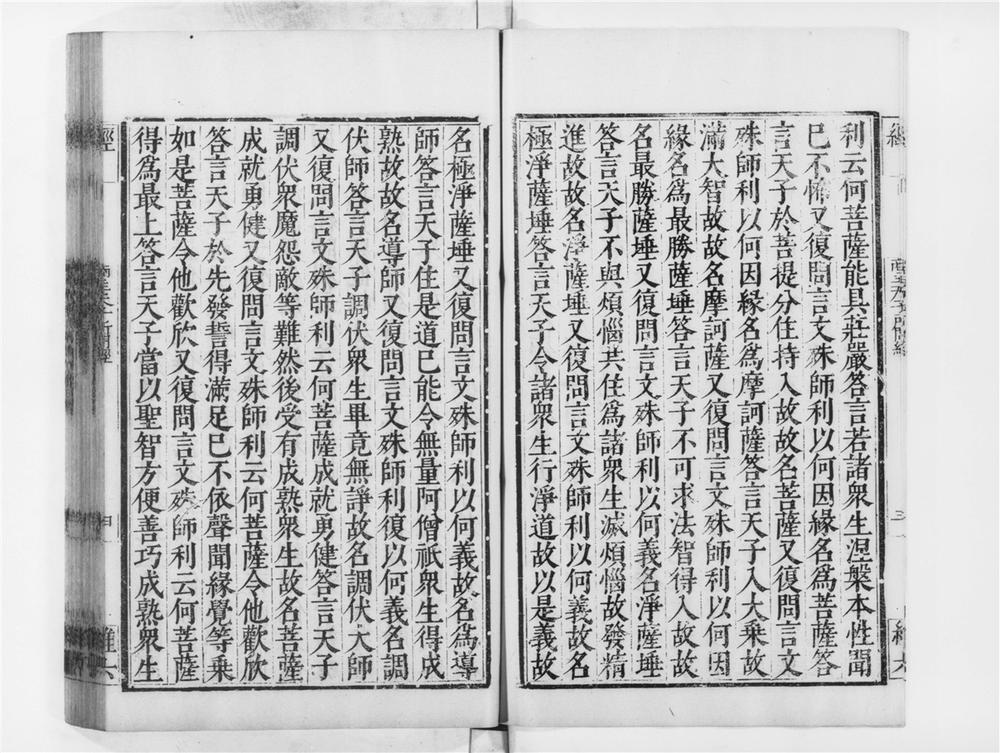 利云何菩薩能具莊嚴答言若諸衆生涅槃本性聞
已不怖又復問言文殊師利以何因緣名爲菩薩答
言天子於菩提分住持入故故名菩薩又復問言文
殊師利以何因緣名爲摩訶薩答言天子入大乘故
滿大智故故名摩訶薩又復問言文殊師利以何因
緣名爲最勝薩埵答言天子不可求法智得入故故
名最勝薩埵又復問言文殊師利以何義名淨薩埵
答言天子不與煩惱共住爲諸衆生滅煩惱故發精
進故故名淨薩埵又復問言文殊師利以何義故名
極淨薩埵答言天子令諸衆生行淨道故以是義故
名極淨薩埵又復問言文殊師利以何義故名爲導
師答言天子住是道已能令無量阿僧祇衆生得成
熟故故名導師又復問言文殊師利復以何義名調
伏師答言天子調伏衆生畢竟無諍故名調伏大師
又復問言文殊師利云何菩薩成就勇健答言天子
調伏衆魔怨敵等難然後受有成熟衆生故名菩薩
成就勇健又復問言文殊師利云何菩薩令他歡欣
答言天子於先發誓得滿足已不依聲聞緣覺等乘
如是菩薩令他歡欣又復問言文殊師利云何菩薩
得爲最上答言天子當以聖智方便善巧成熟衆生